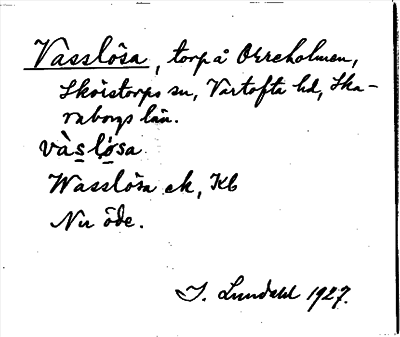 Vasslösa, torp å Orreholmen,
Skörstorps sn, Vartofta hd, Ska-
raborgs län.
vàslösa
Wasslösa ek, Kb
Nu öde.
I. Lundahl 1927.